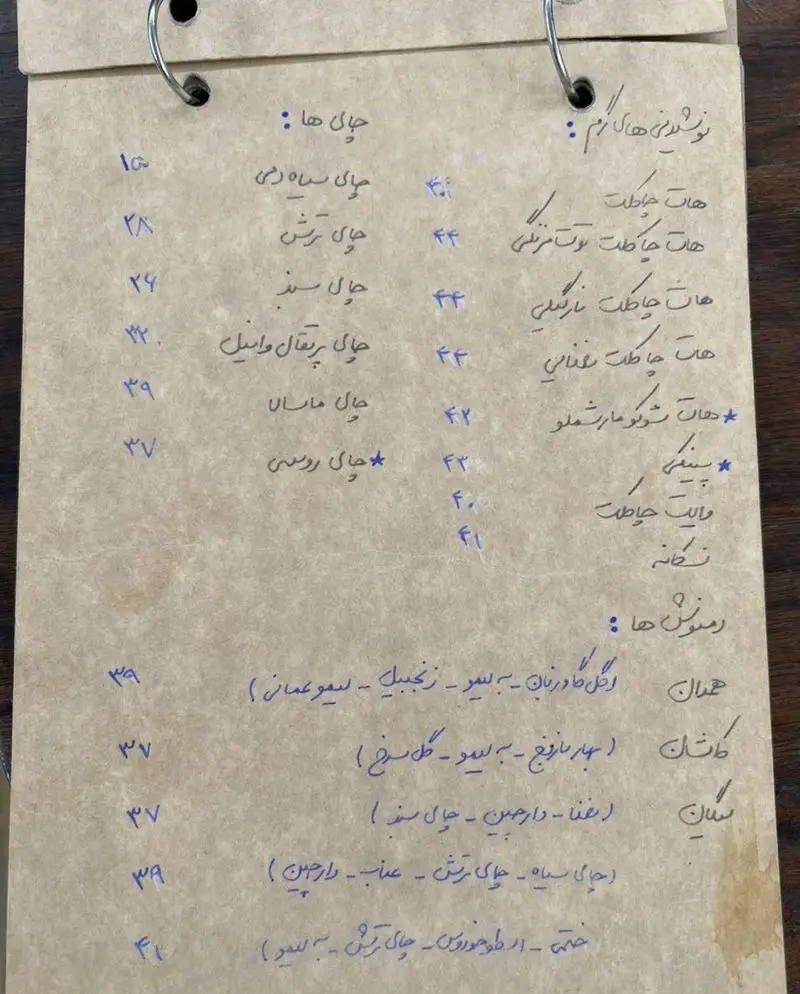 نوشیدنی های گرم :
هات چاکلت ۴۰
هات چاکلت توت فرنگی ۴۴
هات چاکلت نارگیلی ۴۴
هات چاکلت نعنایی ۴۴
★ هات شوکو مارشملو ۴۲
★ پینکی ۴۳
وایت چاکلت ۴۰
نسکافه ۴۱
چای ها :
چای سیاه دمی ۱۵
چای ترش ۲۸
چای سبز ۲۶
چای پرتقال وانیل ۳۲
چای ماسالا ۳۹
★ چای روسی ۳۷
دمنوش ها :
همدان (گل گاوزبان - به لیمو - زنجبیل - لیمو عمانی) ۳۹
کاشان (بهار نارنج - به لیمو - گل سرخ) ۳۷
(نعنا - دارچین - چای سبز) ۳۷
(چای سیاه - چای ترش - عناب - دارچین) ۳۹
ختمی - اسطوخودوس - چای ترش - به لیمو) ۴۱